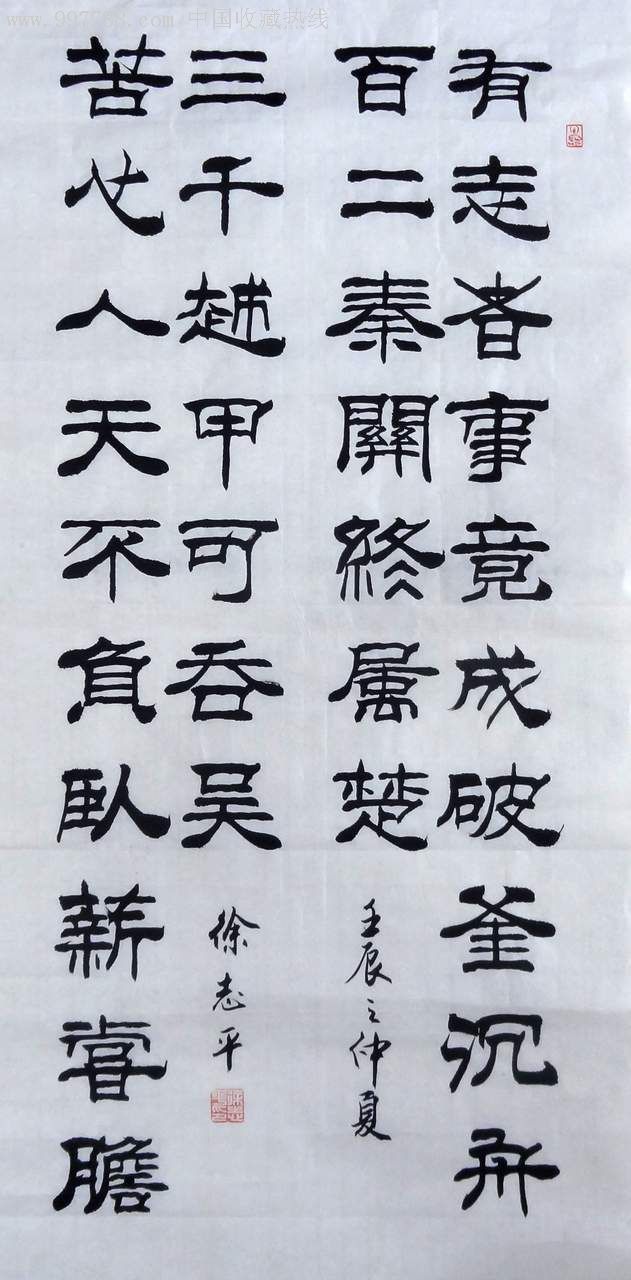 www.997788.com 中国收藏热线
有志者事竟成破釜沉舟
百二秦關終属楚
壬辰之仲夏
苦心人天不負臥薪嘗膽
三千越甲可吞吴
徐志平